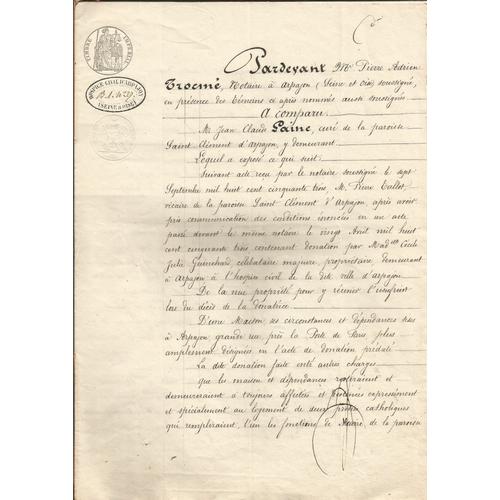 TIMBRE IMPERIAL
HOSPICE CIVIL D'ARPAJON
(SEINE & OISE)
Pardevant Me Pierre Adrien
Trocmé, Notaire à Arpajon (Seine et Oise) soussigné,
en présence des témoins ci après nommés aussi soussignés
A comparu
Mr Jean Claude Paine, curé de la paroisse
Saint Clément d'Arpajon, y demeurant.
Lequel a exposé ce qui suit:
Suivant acte reçu par le notaire soussigné le sept
Septembre mil huit cent cinquante trois, M. Pierre Collot,
vicaire de la paroisse Saint Clément d'Arpajon, après avoir
pris communication des conditions énoncées en un acte
passé devant le même notaire le vingt Avril mil huit
cent cinquante trois contenant donation par Madlle Cécile
Julie célibataire majeure, propriétaire, demeurant
à Arpajon à l'hospice civil de la dite ville d'Arpajon.
De la nue propriété pour y réunir l'usufruit
lors du décès de la donatrice
D'une Maison ses circonstances et dépendances sises
à Arpajon grande rue près la Porte de Paris plus
amplement désignées en l'acte de donation prédaté
La dite donation faite entr'autres charges
que la maison et dépendances resteraient et
demeureraient à toujours affectées et expressément
et spécialement au logement de deux prêtres catholiques
qui rempliraient, l'un les fonctions de de la paroisse